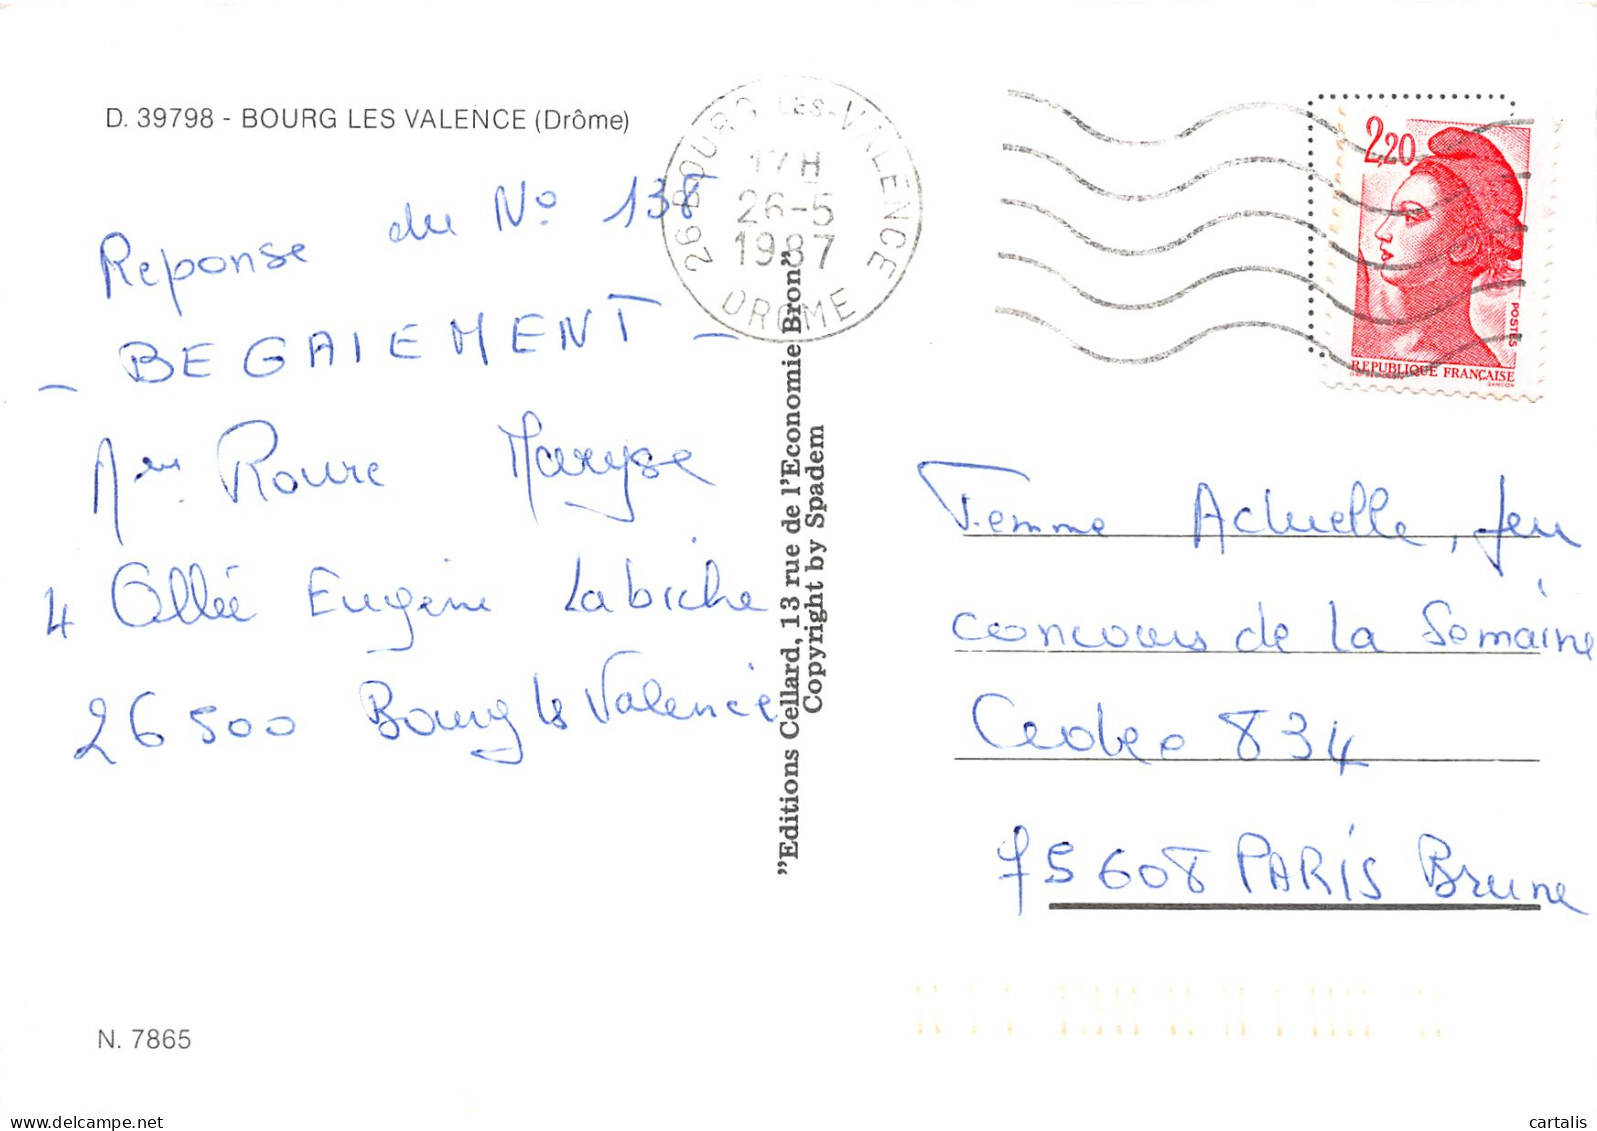 D. 39798 - BOURG LES VALENCE (Drôme)
Reponse du No 138
- BEGAIEMENT -
Roure Maryse
4 Allée Eugène Labiche
26500 Bourg les Valence
N. 7865
"Editions Cellard, 13 rue de l'Economie Bron"
Copyright by Spadem
26 BOURG LES-VALENCE
17H
26-5
1987
DROME
2,20
POSTES
REPUBLIQUE FRANÇAISE
GANDON
Femme Actuelle, Jeu
concours de la Semaine
Cedex 834
75608 PARIS Brune
cartalis